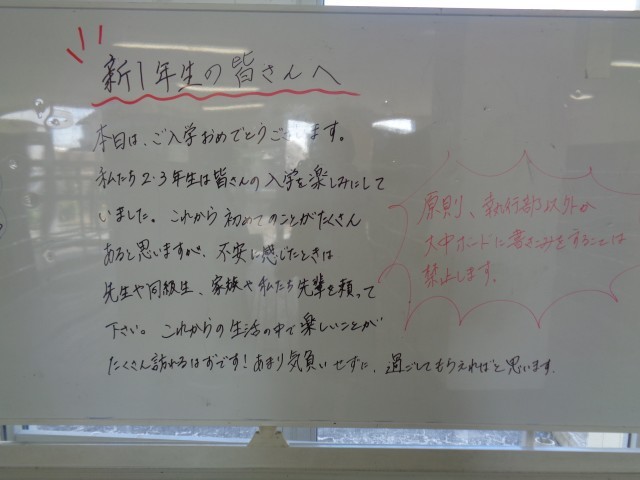 新1年生の皆さんへ
本日は、ご入学おめでとうございます。
私たち2・3年生は皆さんの入学を楽しみにして
いました。これから初めてのことがたくさん
あると思いますが、不安に感じたときは
先生や同級生、家族や私たち先輩を頼って
下さい。これからの生活の中で楽しいことが
たくさん訪れるはずです!あまり気負いせずに、過ごしてもらえればと思います.
原則、執行部以外が
大中ボードに書きこみをすることは
禁止します.